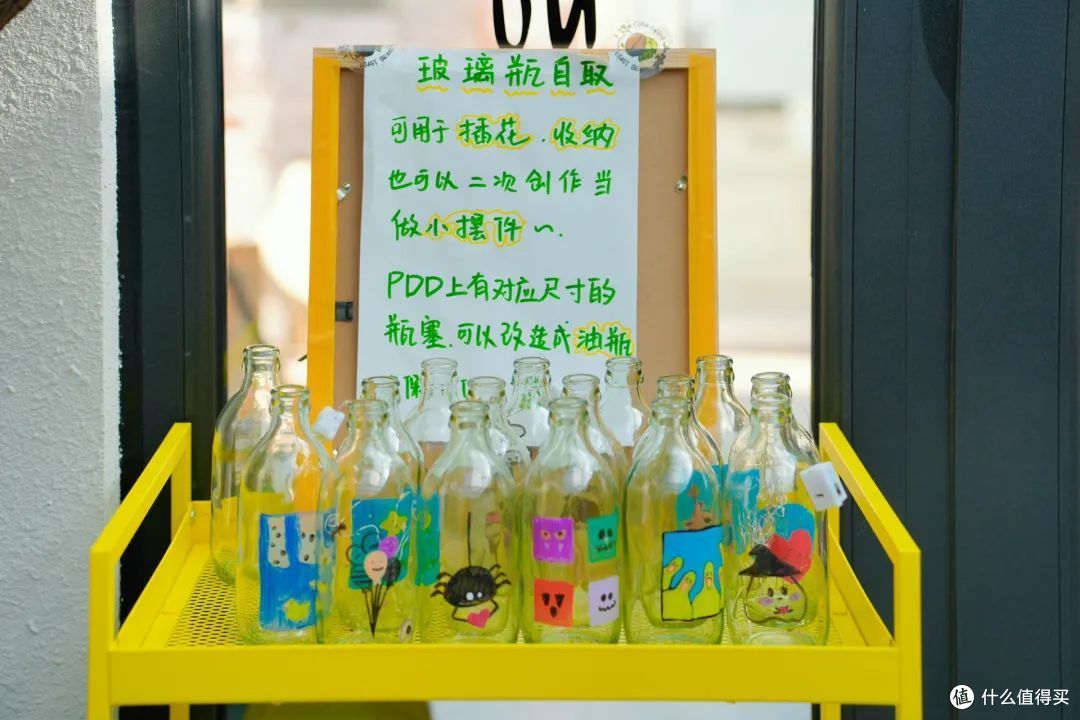 ou
玻璃瓶自取
可用于插花.收纳
也可以二次创作当
做小摆件~.
PDD上有对应尺寸的
瓶塞.可以改造成油瓶
值 什么值得买